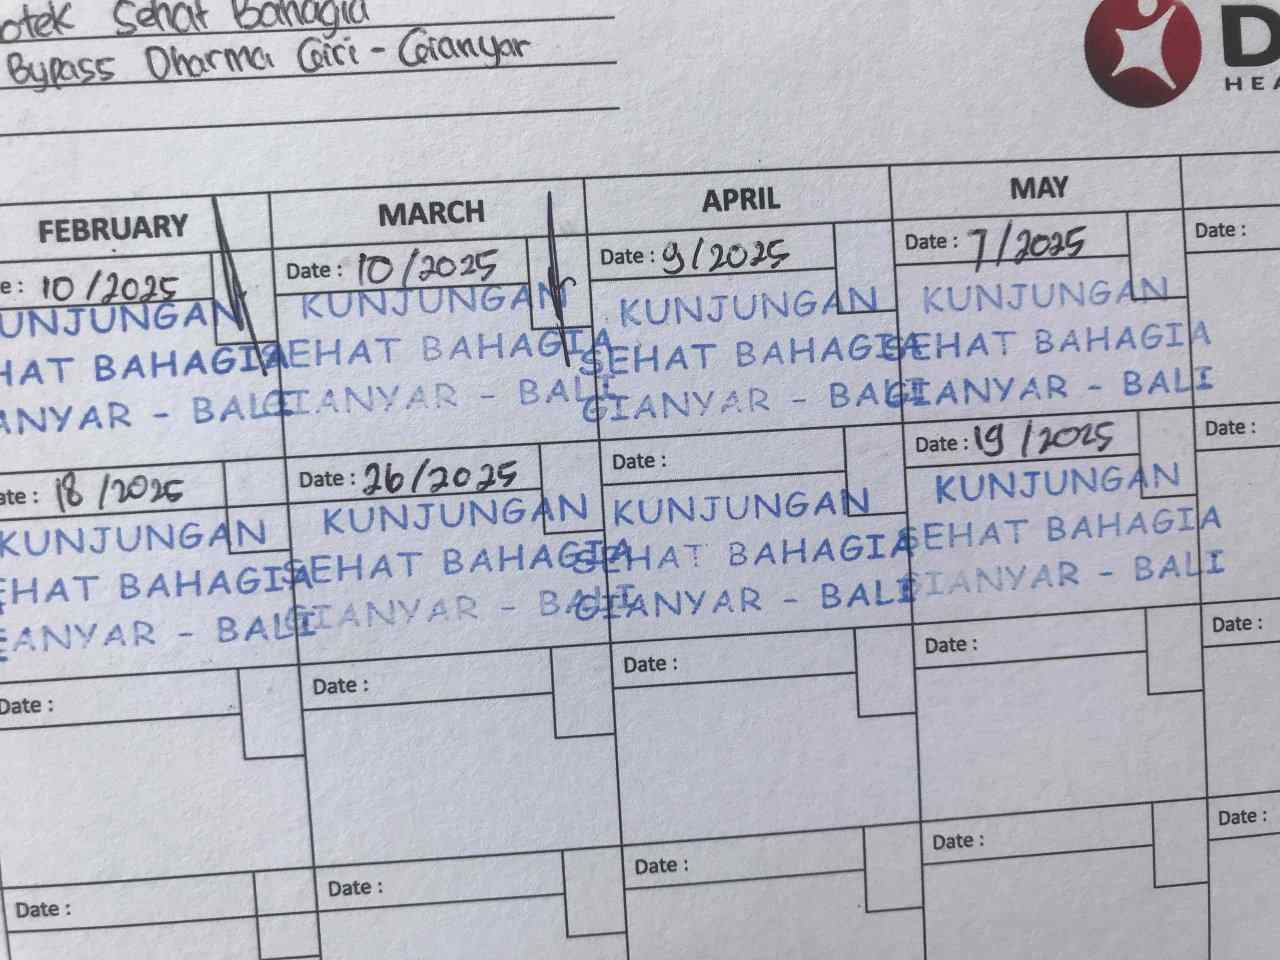 otek Sehat Bahagia
Bypass Dharma Giri - Gianyar
D
HEA
FEBRUARY MARCH APRIL MAY
e: 10/2025 Date: 10/2025 Date: 9/2025 Date: 7/2025 Date:
UNJUNGAN KUNJUNGAN KUNJUNGAN KUNJUNGAN
HAT BAHAGIA SEHAT BAHAGIA SEHAT BAHAGIA SEHAT BAHAGIA
ANYAR - BALI GIANYAR - BALI GIANYAR - BALI GIANYAR - BALI
ate: 18/2025 Date: 26/2025 Date: Date: 19/2025 Date:
KUNJUNGAN KUNJUNGAN KUNJUNGAN KUNJUNGAN
EHAT BAHAGIA SEHAT BAHAGIA SEHAT BAHAGIA SEHAT BAHAGIA
IANYAR - BALI GIANYAR - BALI GIANYAR - BALI GIANYAR - BALI
Date: Date: Date: Date: Date:
Date: Date: Date: Date: Date: